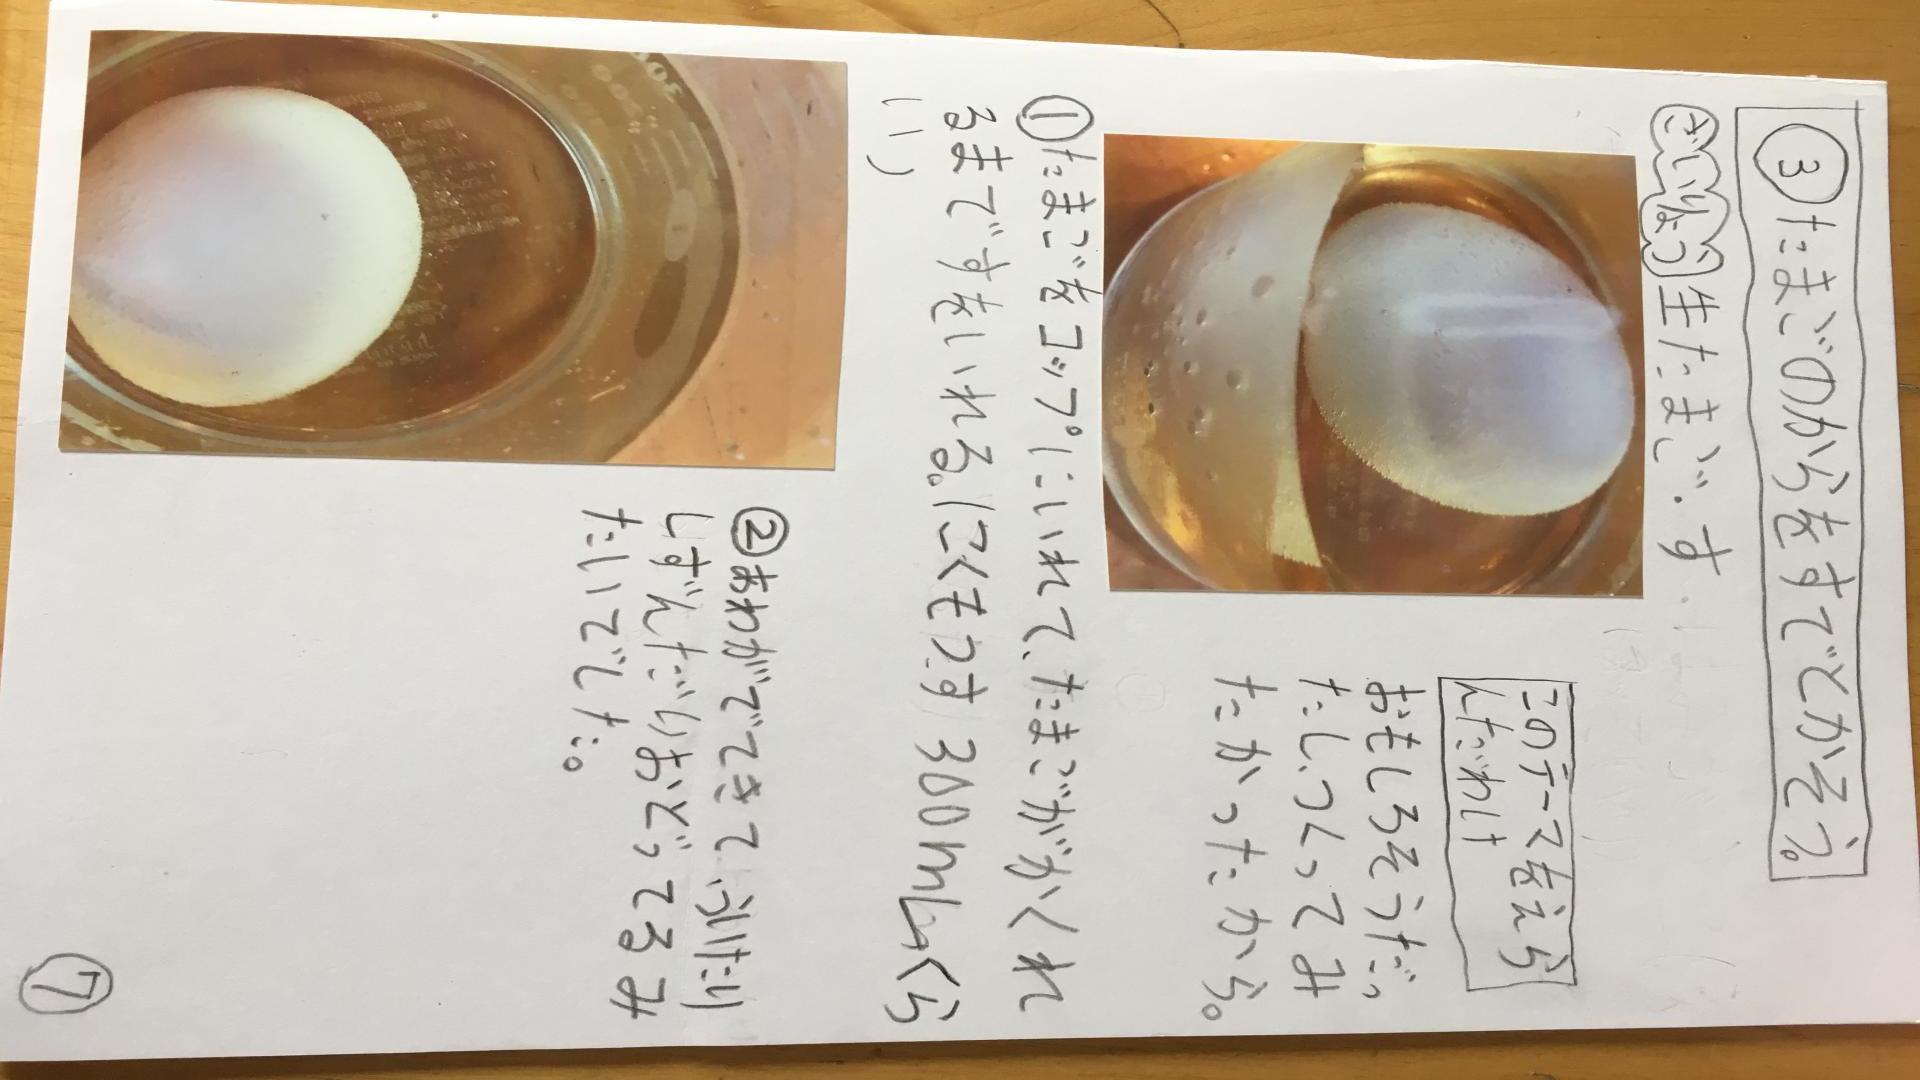 ③たまごのからをすでとかそう。
ざいりょう生たまご.す
このテーマをえら
んだわけ
おもしろそうだっ
たし、つくってみ
たかったから。
①たまごをコップにいれて、たまごがかくれ
るまですをいれる。(こくもつす300mLくら
い)
②あわがでてきて、ういたり
しずんだりおどってるみ
たいでした。
⑦